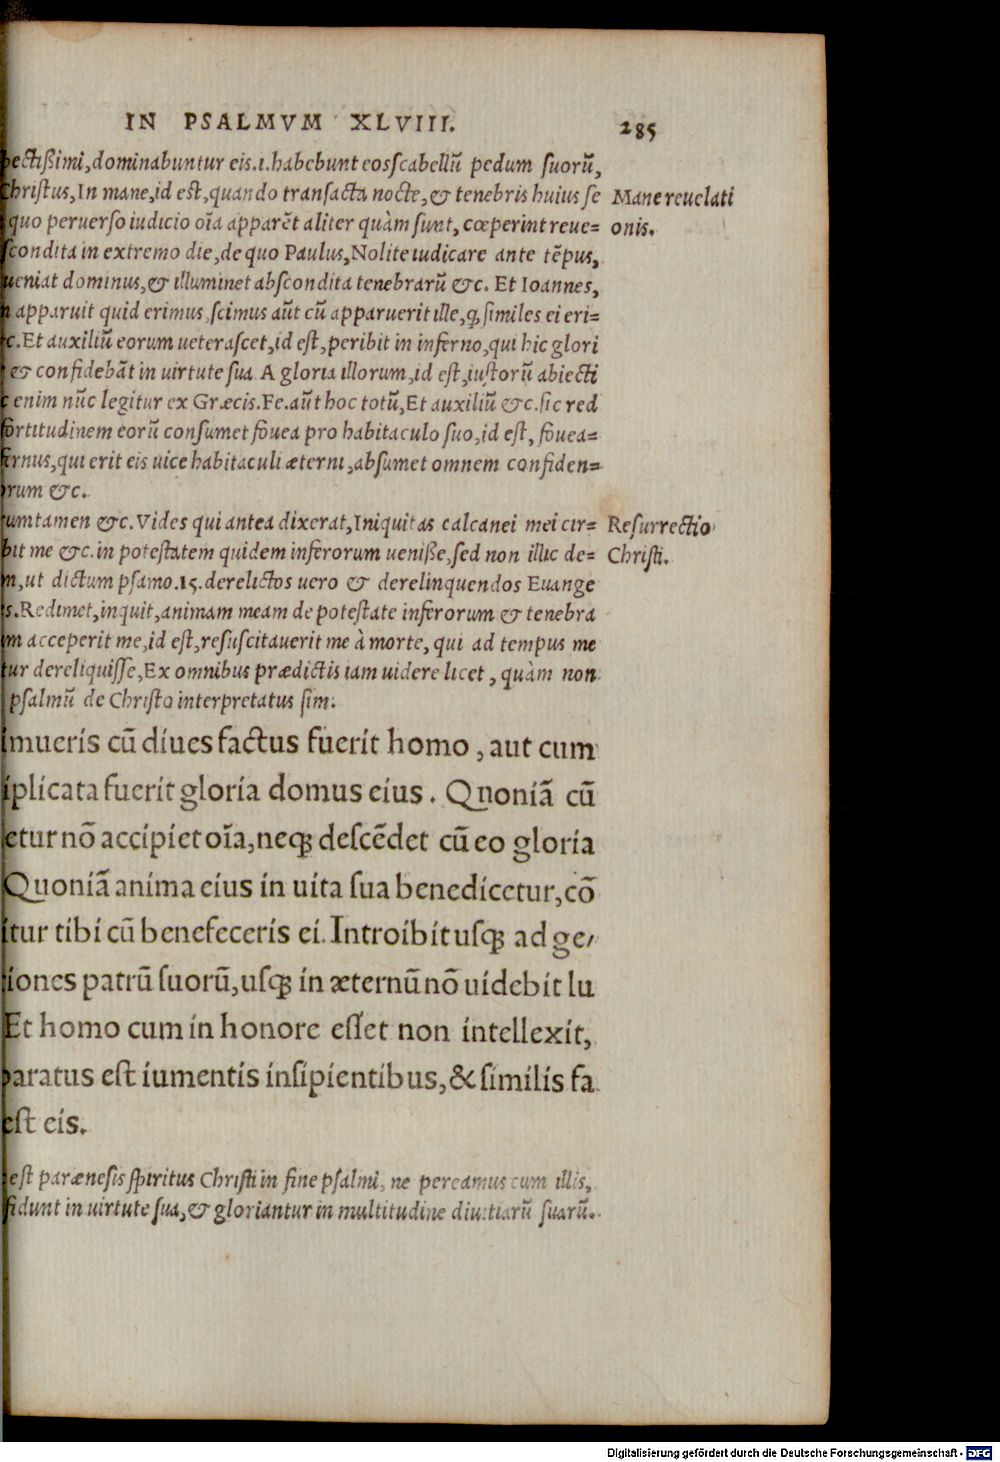 IN PSALMVM XLVIII. 285
pectißimi, dominabuntur eis.i.habebunt eos scabellũ pedum suorũ,
Christus, In mane, id est, quando transacta nocte, & tenebris huius se
quo peruerso iudicio oĩa apparẽt aliter quàm sunt, cœperint reue=
Mane reuelati
onis.
scondita in extremo die, de quo Paulus, Nolite iudicare ante tẽpus,
ueniat dominus, & illuminet abscondita tenebrarũ &c. Et Ioannes,
n apparuit quid erimus, scimus aũt cũ apparuerit ille, ꝙ similes ei eri=
c. Et auxiliũ eorum ueterascet, id est, peribit in inferno, qui hic glori
& confidebãt in uirtute sua. A gloria illorum, id est, iustorũ abiecti
c enim nũc legitur ex Græcis. Fe. aũt hoc totũ, Et auxiliũ &c. sic red
fortitudinem eorũ consumet fouea pro habitaculo suo, id est, fouea=
fernus, qui erit eis uice habitaculi æterni, absumet omnem confiden=
orum &c.
rumtamen &c. Vides qui antea dixerat, Iniquitas calcanei mei cir=
bit me &c. in potestatem quidem inferorum ueniße, sed non illic de=
Resurrectio
Christi.
m, ut dictum psamo.15. derelictos uero & derelinquendos Euange
s. Redimet, inquit, animam meam de potestate inferorum & tenebra
m acceperit me, id est, resuscitauerit me à morte, qui ad tempus me
tur dereliquisse, Ex omnibus prædictis iam uidere licet, quàm non
psalmũ de Christo interpretatus sim.
imueris cũ diues factus fuerit homo, aut cum
iplicata fuerit gloria domus eius. Quoniã cũ
etur nõ accipiet oĩa, neqꝫ descẽdet cũ eo gloria
Quoniã anima eius in uita sua benedicetur, cõ
itur tibi cũ benefeceris ei. Introibit usqꝫ ad ge/
tiones patrũ suorũ, usqꝫ in æternũ nõ uidebit lu
Et homo cum in honore esset non intellexit,
paratus est iumentis insipientibus, & similis fa
est eis.
est parænesis spiritus Christi in fine psalmi, ne pereamus cum illis,
fidunt in uirtute sua, & gloriantur in multitudine diuitiarũ suarũ.
Digitalisierung gefördert durch die Deutsche Forschungsgemeinschaft - DFG